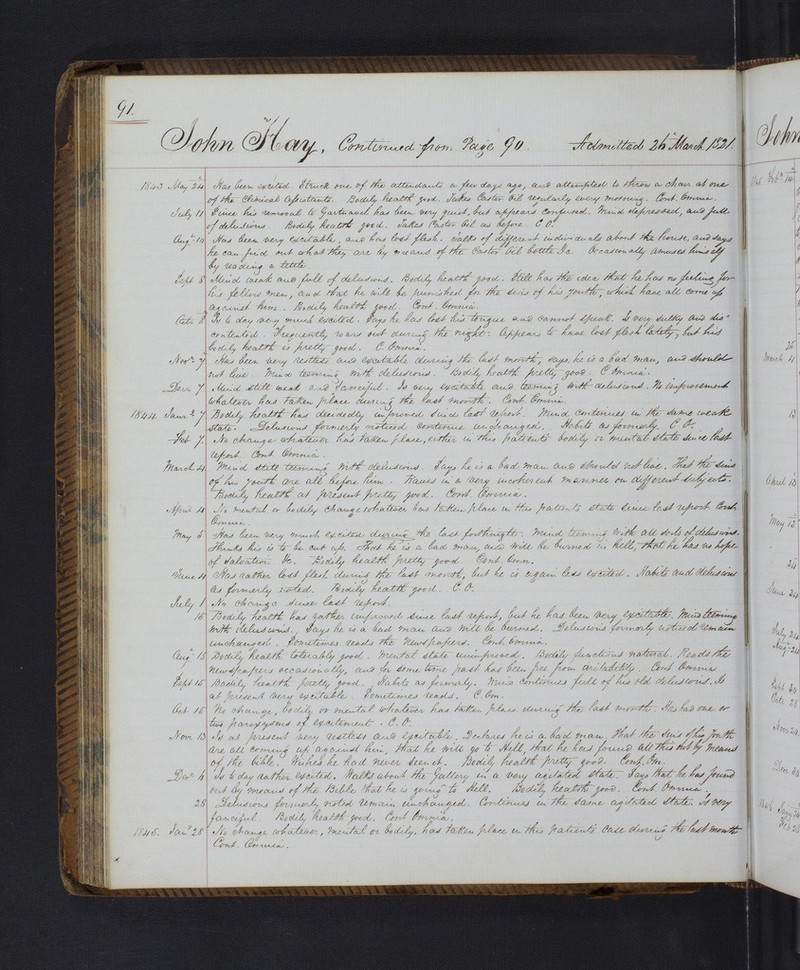 91.
John Hay, Continued from Page 90. Admitted 26th March 1821.
1843 May 24 Has been excited. Struck one of the attendants a few days ago, and attempted to throw a chair at one
of the Clinical Assistants. Bodily health good. Takes Castor Oil regularly every morning. Cont. Omnia.
July 11 Since his removal to Gartnavel has been very quiet, but appears confused. Mind depressed, and full
of delusions. Bodily health good. Takes Castor Oil as before. C.O.
Augt 10 Has been very excitable, and has lost flesh. Talks of different individuals about the house, and says
he can find out what they are by means of the Castor Oil bottle &c. Occasionally amuses himself
by reading a little.
Sept 8 Mind weak and full of delusions. Bodily health good. Still has the idea that he has no feeling for
his fellow men, and that he will be punished for the sins of his youth, which have all come up
against him. Bodily health good. Cont. Omnia.
Octr 8 Is to day very much excited. Says he has lost his tongue and cannot speak. Is very sulky and dis-
contented. Frequently roars out during the night. Appears to have lost flesh lately, but his
bodily health is pretty good. C. Omnia.
Novr 7 Has been very restless and excitable during the last month, says he is a bad man, and should
not live. Mind teeming with delusions. Bodily health pretty good. C Omnia.
Decr 7 Mind still weak and fanciful. Is very excitable and teeming with delusions. No improvement
whatever has taken place during the last month. Cont Omnia.
1844. Janry 7 Bodily health has decidedly improved since last report. Mind continues in the same weak
state. Delusions formerly noticed continue unchanged. Habits as formerly. C.O.
Feb 7. No change whatever has taken place, either in this patients bodily or mental state since last
report. Cont Omnia.
March 4. Mind still teeming with delusions. Says he is a bad man and should not live. That the sins
of his youth are all before him. Raves in a very incoherent manner on different subjects.
Bodily health at present pretty good. Cont Omnia.
April 4 No mental or bodily change whatever has taken place in this patients state since last report Cont.
Omnia.
May 5 Has been very much excited during the last fortnight. Mind teeming with all sorts of delusions.
Thinks he is to be cut up. That he is a bad man, and will be burned in hell, that he has no hope
of salvation &c. Bodily health pretty good Cont. Omn.
June 4 Has rather lost flesh during the last month, but he is again less excited. Habits and delusions
as formerly noted. Bodily health good. C.O.
July 1 No change since last report.
16 Bodily health has rather improved since last report, but he has been very excitable. Mind teeming
with delusions. Says he is a bad man and will be burned. Delusions formerly noticed remain
unchanged. Sometimes reads the Newspapers. Cont. Omnia.
Augt 15 Bodily health tolerably good. Mental state unimproved. Bodily functions natural. Reads the
newspapers occasionally, and for some time past has been free from irritability. Cont Omnia
Sept 15 Bodily health pretty good. Habits as formerly. Mind continues full of his old delusions. Is
at present very excitable. Sometimes reads. C Om.
Oct. 15 No change, bodily or mental whatever has taken place during the last month. Has had one or
two paroxysms of excitement. C.O.
Novr 13 Is at present very restless and excitable. Declares he is a bad man, that the sins of his youth
are all coming up against him, that he will go to Hell, that he has found all this out by means
of the bible. Wishes he had never seen it. Bodily health pretty good. Cont. Om.
Decr 4 Is to day rather excited. Walks about the gallery in a very agitated state. Says that he has found
out by means of the Bible that he is going to Hell. Bodily health good. Cont Omnia.
28 Delusions formerly noted remain unchanged. Continues in the same agitated state. Is very
fanciful. Bodily health good. Cont Omnia.
1845. Jany 28 No change whatever, mental or bodily, has taken place in this patients case during the last month
Cont. Omnia.
John
25
March 4
13
April 12
May 12
24
June 24
July 24
Augt 24
Sept 20
Octr 28
Novr 29